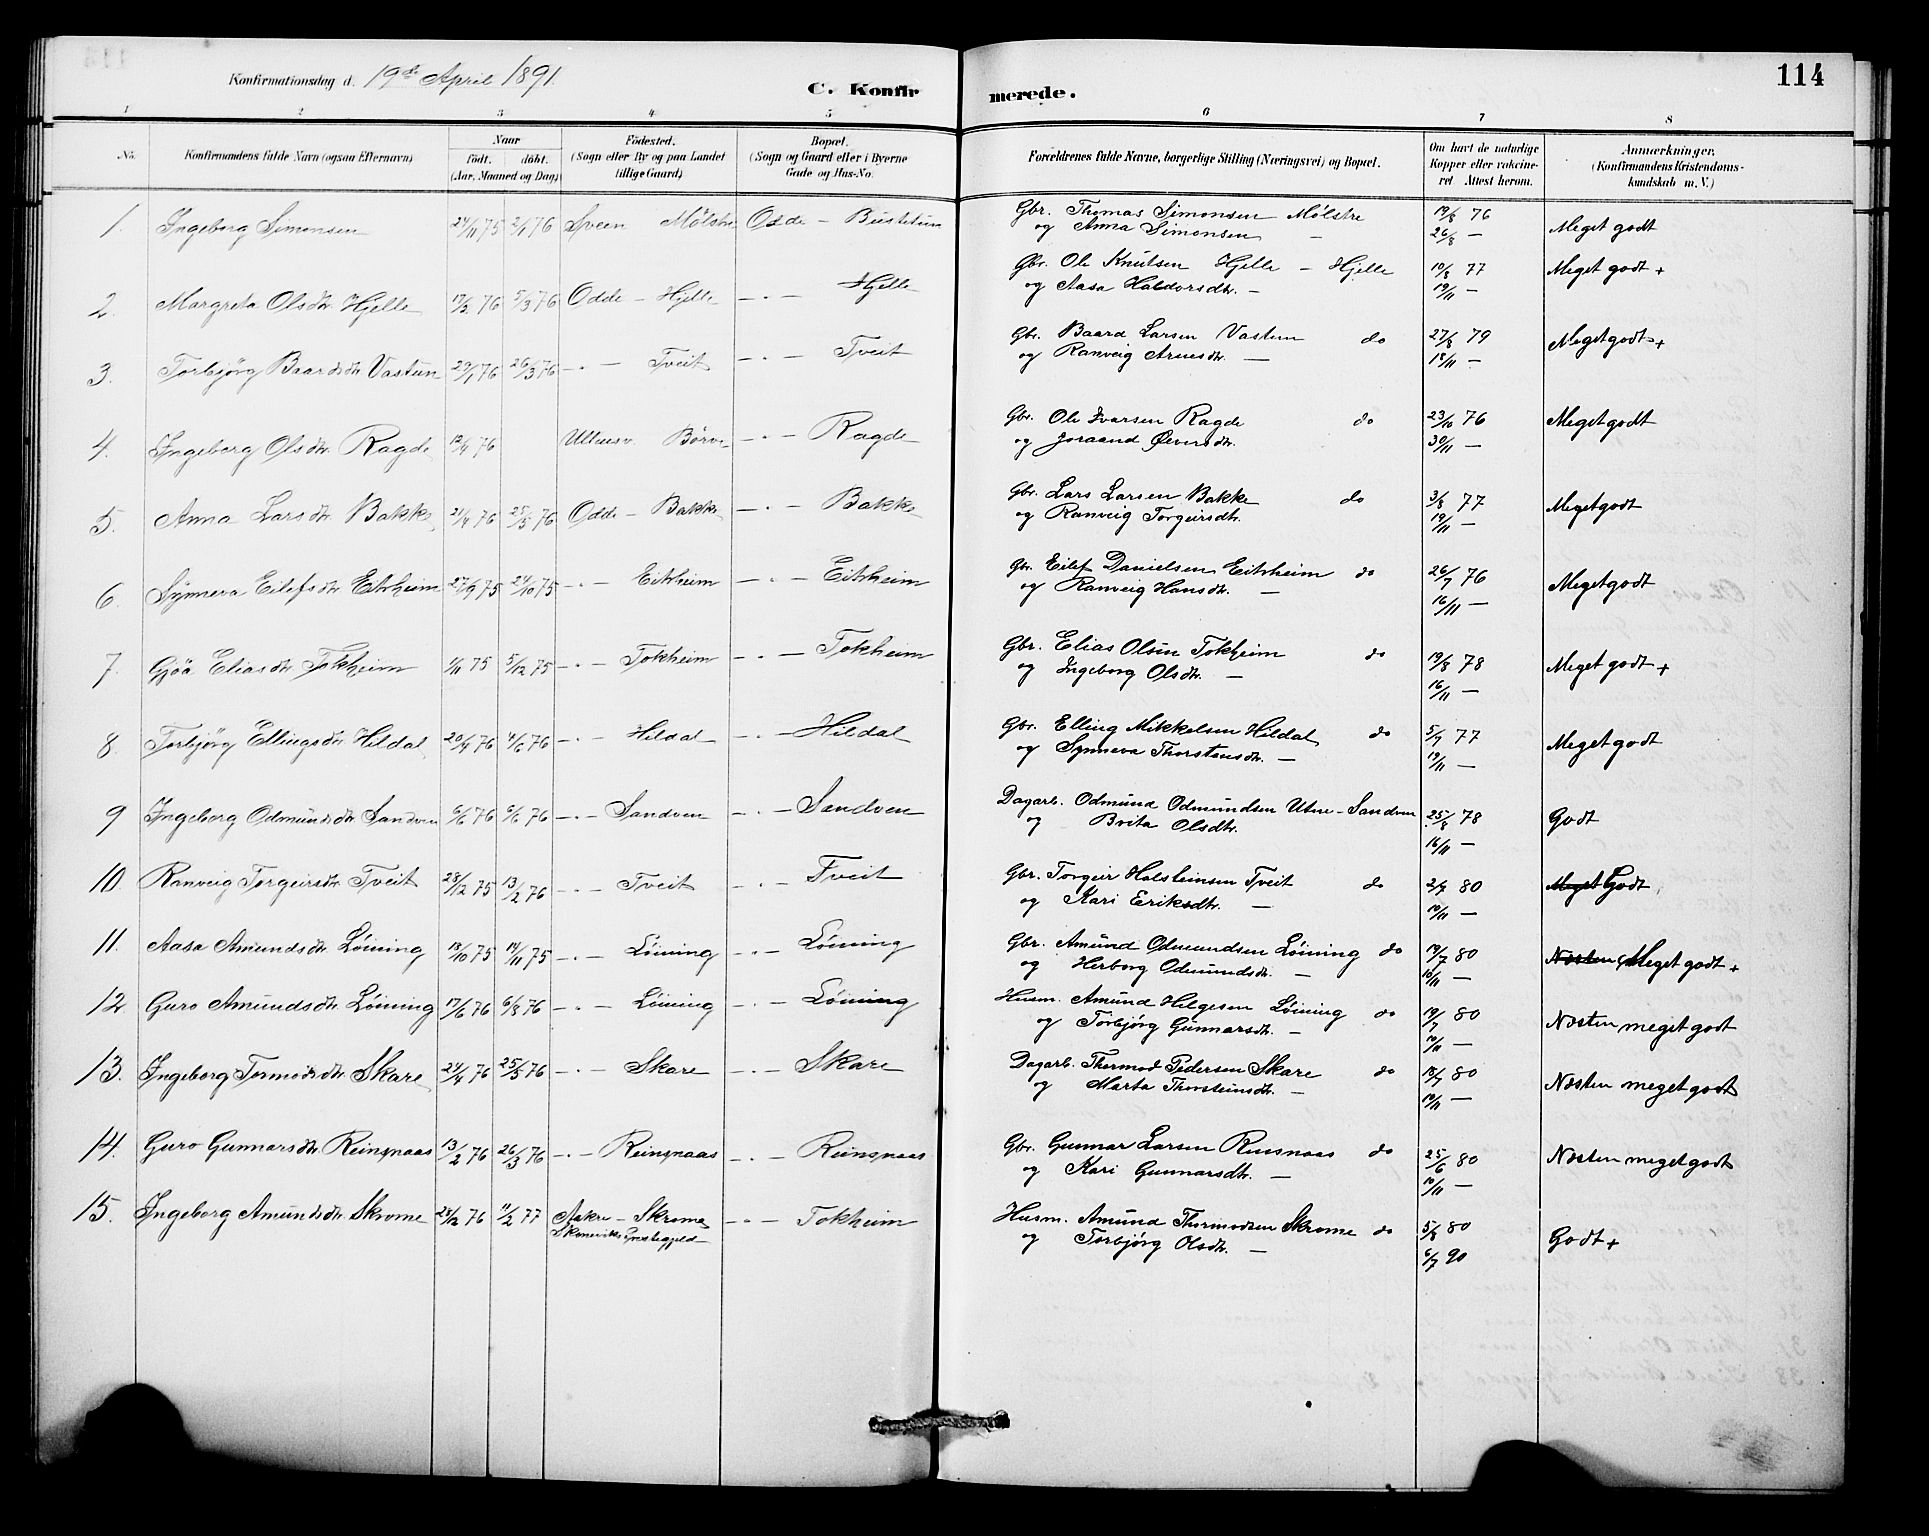 Konfirmationsdag d. 19de April 1891.
C. Konfirmerede.
114
1 2 3 4 5 6 7 8
No. Konfirmandens fulde Navn (ogsaa Efternavn) Naar født. døbt. (Aar, Maaned og Dag) Fødested. (Sogn eller By og paa Landet tillige Gaard) Bopæl. (Sogn og Gaard eller i Byerne Gade og Hus-No. Forældrenes fulde Navne, borgerlige Stilling (Næringsvei) og Bopæl. Om havt de naturlige Kopper eller vakcineret Attest herom. Anmærkninger. (Konfirmandens Kristendomskundskab m. V.)
1. Ingeborg Simonsen 24/11 75 2/1 76 Sveen Mølstre Odde – Bustetun Gbr. Thomas Simonsen Mølstre 19/8 76 Meget godt
og Anna Simonsen – 26/8 –
2. Margreta Olsdtr Hjelle 17/2 76 5/3 76 Odde – Hjelle – . – Hjelle Gbr. Ole Knutsen Hjelle – Hjelle 10/8 77 Meget godt +
og Aasa Haldorsdtr. – 19/11 –
3. Torbjörg Baardsdtr Vastun 29/1 76 26/3 76 – . – Tveit – . – Tveit Gbr. Baard Larsen Vastun do 27/8 79 Meget godt +
og Ranveig Arnesdtr. – 18/11 –
4. Ingeborg Olsdtr Ragde 12/4 76 Ullensv. Børve – . – Ragde Gbr. Ole Ivarsen Ragde do 23/10 76 Meget godt
og Joraand 30/11 –
5. Anna Larsdtr Bakke 21/4 76 25/5 76 Odde – Bakke – . – Bakke Gbr. Lars Larsen Bakke do 3/8 77 Meget godt
og Ranveig Torgeirsdtr. 19/11 –
6. Synneva Eilefsdtr Eitrheim 27/9 75 24/10 75 – . – Eitrheim – . – Eitrheim Gbr. Eilef Danielsen Eitrheim do 26/7 76 Meget godt
og Ranveig Hansdtr. – 16/11 –
7. Gjöa Eliasdtr Tokheim 1/11 75 5/12 75 – . – Tokheim – . – Tokheim Gbr. Elias Olsen Tokheim do 19/8 78 Meget godt +
og Ingeborg Olsdtr. – 16/11 –
8. Torbjörg Ellingsdtr Hildal 20/4 76 4/6 76 – . – Hildal – . – Hildal Gbr. Elling Mikkelsen Hildal do 5/7 77 Meget godt
og Synneva Thorstensdtr. – 19/11 –
9 Ingeborg Odmundsdtr Sandven 6/6 76 6/6 76 – . – Sandven – . – Sandven Dagarb. Odmund Odmundsen Utne – Sandven 25/8 78 Godt
og Brita Olsdtr. 16/11 –
10. Ranveig Torgeirsdtr Tveit 28/12 75 13/2 76 – . – Tveit – . – Tveit Gbr. Torgeir Halsteinsen Tveit do 2/7 80 Meget Godt
og Kari Eriksdtr. – 10/11 –
11. Aasa Amundsdtr Löining 18/10 75 14/11 75 – . – Löining – . – Löining Gbr. Amund Odmundsen Löining do 19/7 80 Næsten Meget godt +
og Herborg Odmundsdtr. – 10/11 –
12 Guro Amundsdtr. Löining 17/6 76 6/8 76 – . – Löining – . – Löining Husm. Amund Helgesen Löining do 19/7 80 Næsten meget godt
og Torbjörg Gunnarsdtr. – 10/11 –
13. Ingeborg Tormodsdtr Skare 24/4 76 25/5 76 – . – Skare – . – Skare Dagarb. Thormod Pedersen Skare do 18/7 80 Næsten meget godt
og Marta Thorsteinsdtr. – 10/11 –
14. Guro Gunnarsdtr Reinsnaas 13/2 76 26/3 76 – . – Reinsnaas – . – Reinsnaas Gbr. Gunnar Larsen Reinsnaas do 25/6 80 Næsten meget godt
og Kari Gunnarsdtr. – 10/11 –
15. Ingeborg Amundsdtr Skrome 28/12 76 11/2 77 Aakre – Skrome – . – Tokheim Husm. Amund Thormodsen Skrome do 5/8 80 Godt +
Skoneviks Præstegjeld og Torbjörg Olsdtr. – 6/7 90